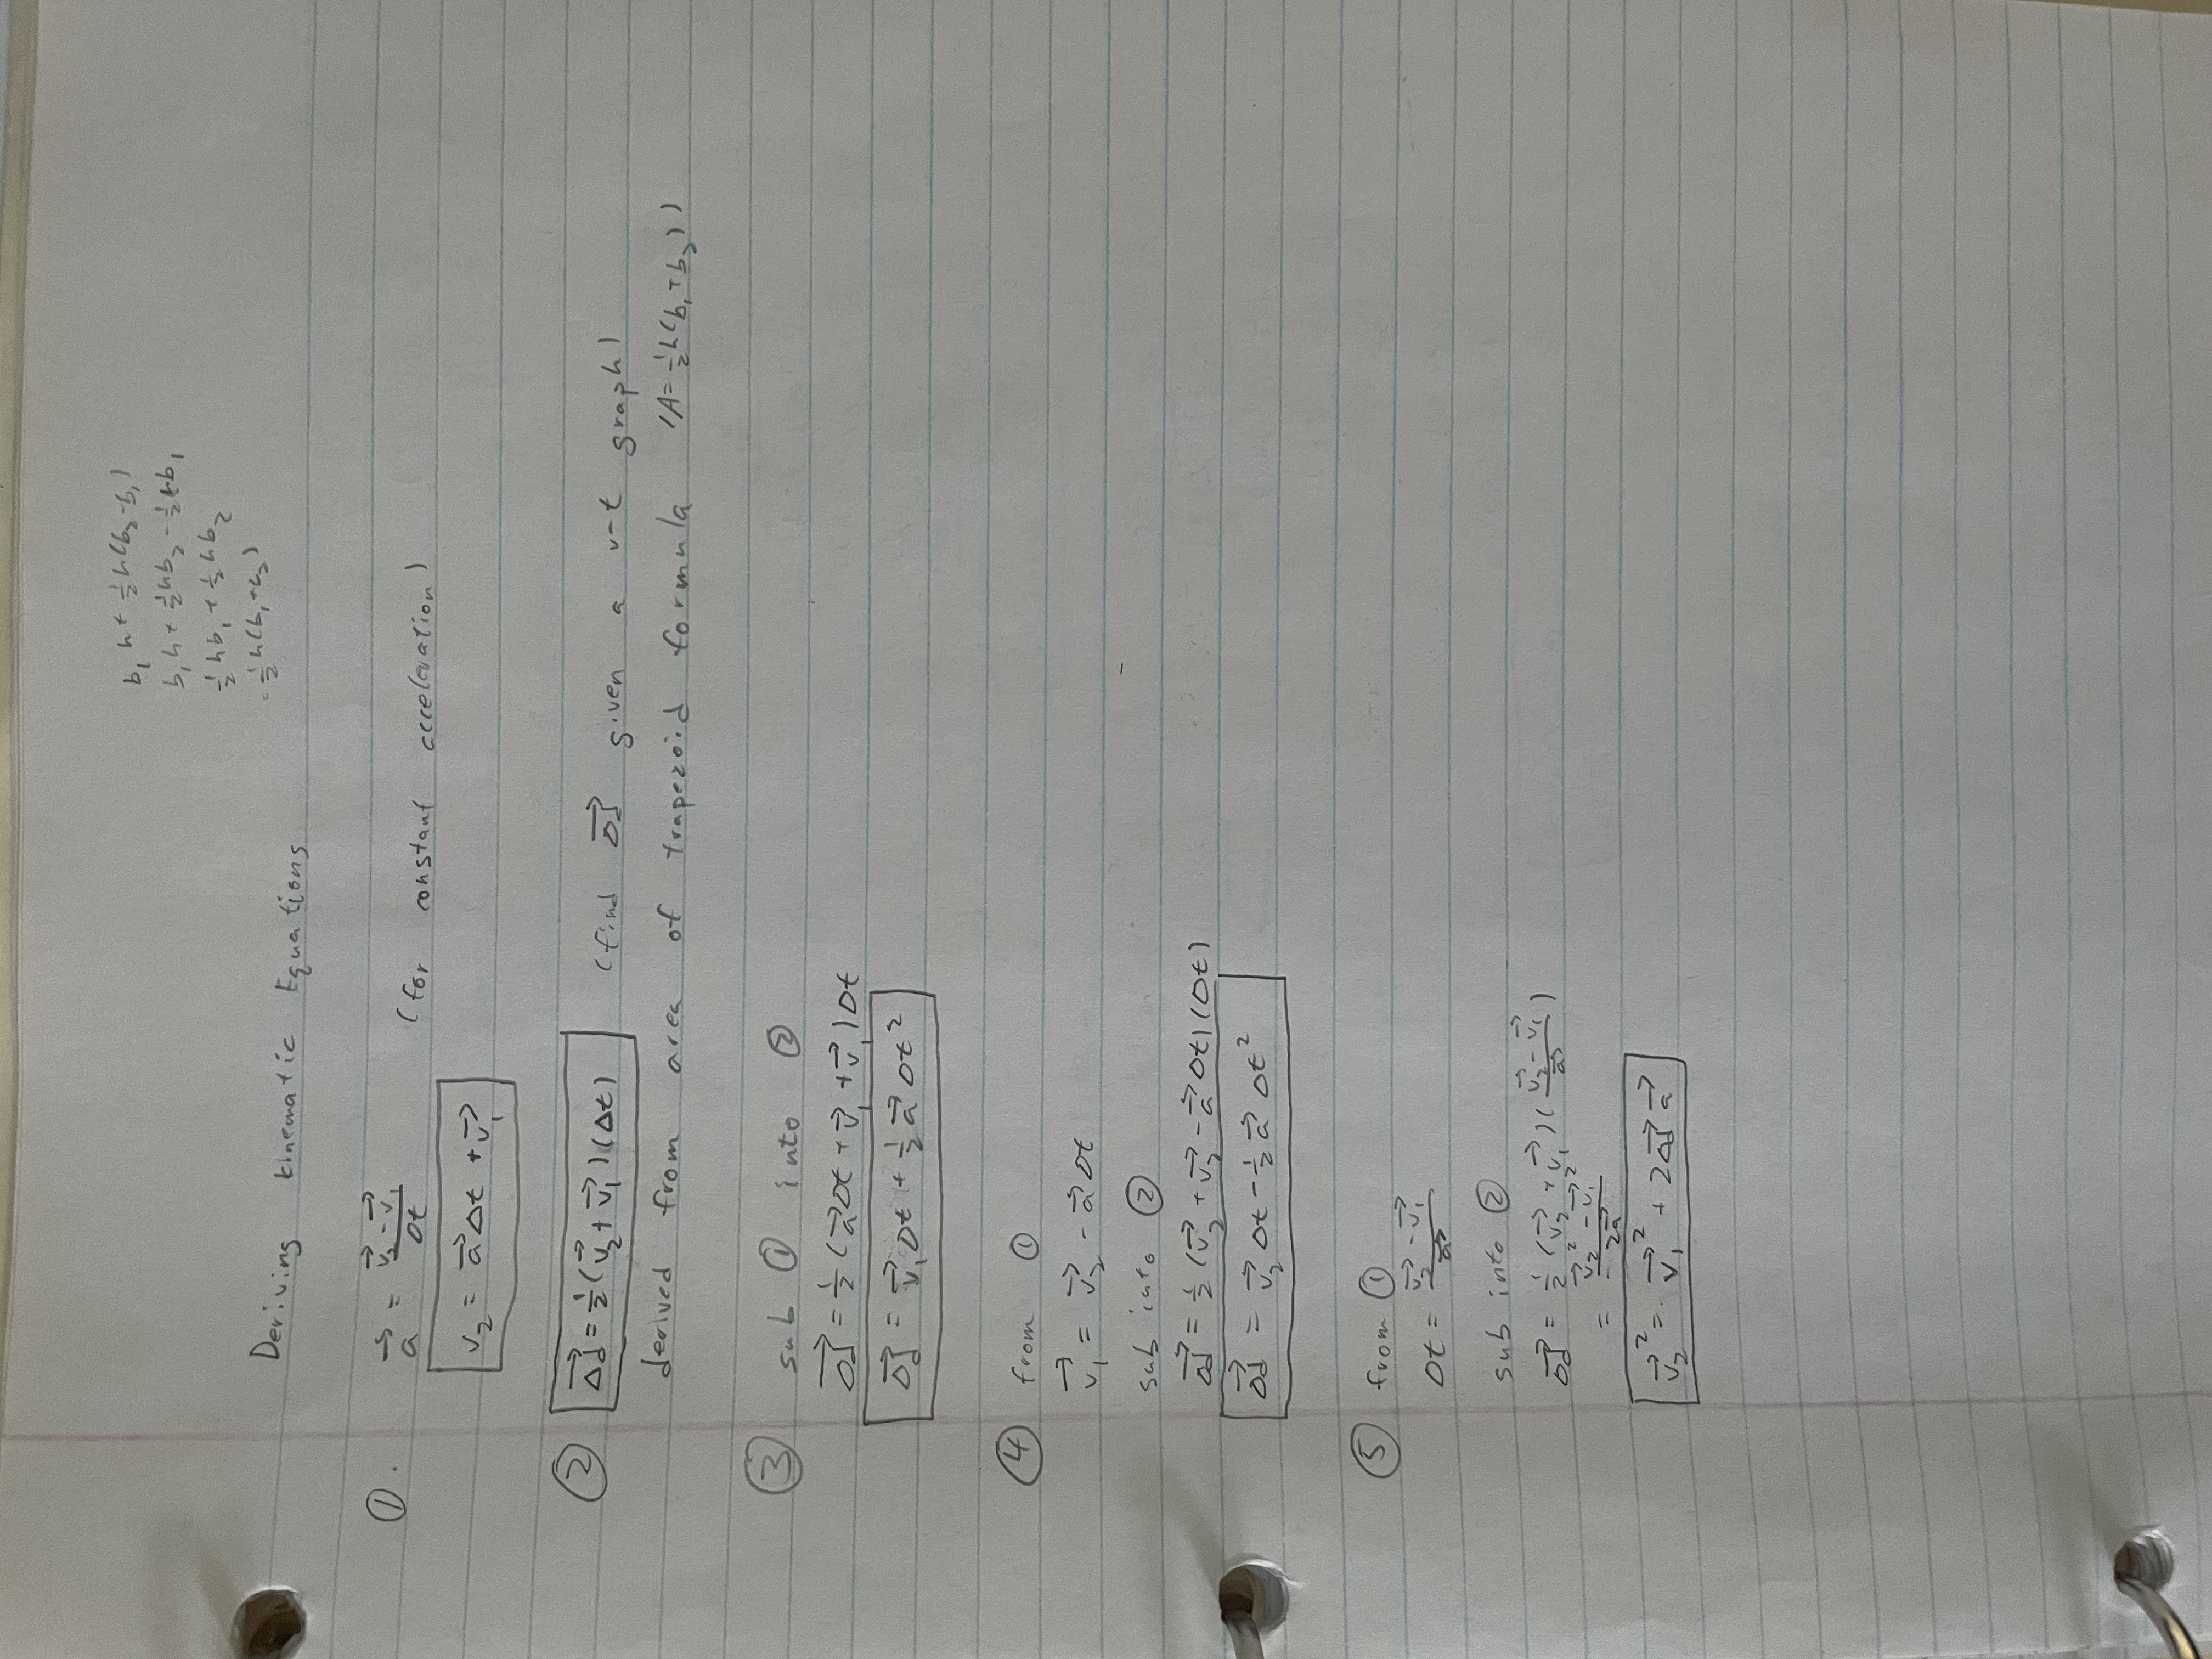 b₁h + ½h(b₂-b₁)
b₁h + ½hb₂ - ½hb₁
½hb₁ + ½hb₂
= ½h(b₁+b₂)
Deriving kinematic Equations
①. a⃗ = (v⃗₂ - v⃗₁)/Δt (for constant acceleration)
v₂ = a⃗Δt + v⃗₁
② Δd⃗ = ½(v⃗₂ + v⃗₁)(Δt) (find Δd⃗ given a v-t graph)
derived from area of trapezoid formula (A = ½h(b₁+b₂))
③ sub ① into ②
Δd⃗ = ½(a⃗Δt + v⃗₁ + v⃗₁)Δt
Δd⃗ = v⃗₁Δt + ½a⃗Δt²
④ from ①
v⃗₁ = v⃗₂ - a⃗Δt
sub into ②
Δd⃗ = ½(v⃗₂ + v⃗₂ - a⃗Δt)(Δt)
Δd⃗ = v⃗₂Δt - ½a⃗Δt²
⑤ from ①
Δt = (v⃗₂ - v⃗₁)/a⃗
sub into ②
Δd⃗ = ½(v⃗₂ + v⃗₁)((v⃗₂ - v⃗₁)/a⃗)
= (v⃗₂² - v⃗₁²)/2a⃗
v⃗₂² = v⃗₁² + 2Δd⃗a⃗